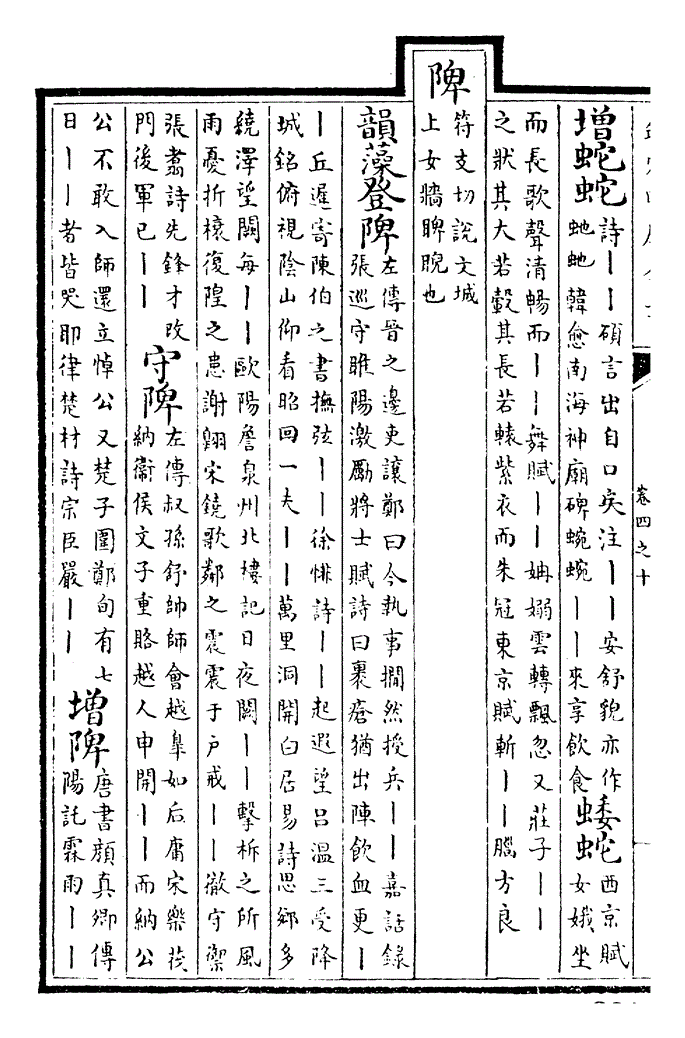 卷四之十
增蛇蛇
詩丨丨碩言出自口矣注丨丨安舒貌亦作
虵虵韓愈南海神廟碑蜿蜿丨丨來享飲食
蜲蛇
西京賦
女娥坐
而長歌聲清暢而丨丨舞賦丨丨姌嫋雲轉飄忽又莊子丨丨
之狀其大若轂其長若轅紫衣而朱冠東京賦斬丨丨腦方良
陴
符支切說文城
上女牆睥睨也
韻藻登陴
左傳晉之邊吏讓鄭曰今執事撊然授兵丨丨嘉話錄
張巡守睢陽激勵將士賦詩曰裹瘡猶出陣飲血更丨
丨丘遲寄陳伯之書撫弦丨丨徐悱詩丨丨起遐望呂溫三受降
城銘俯視陰山仰看昭回一夫丨丨萬里洞開白居易詩思鄉多
繞澤望闕每丨丨歐陽詹泉州北樓記日夜闕丨丨擊柝之所風
雨憂折榱復隍之患謝翱宋鐃歌鄰之震震于戶戒丨丨徹守禦
張翥詩先鋒才攻
門後軍已丨丨
守陴
左傳叔孫舒帥師會越臯如后庸宋樂茷
納衛侯文子重賂越人申開丨丨而納公
公不敢入師還立悼公又楚子圍鄭旬有七
日丨丨者皆哭耶律楚材詩宗臣嚴丨丨
增陴
唐書顏真卿傳
陽託霖雨丨丨